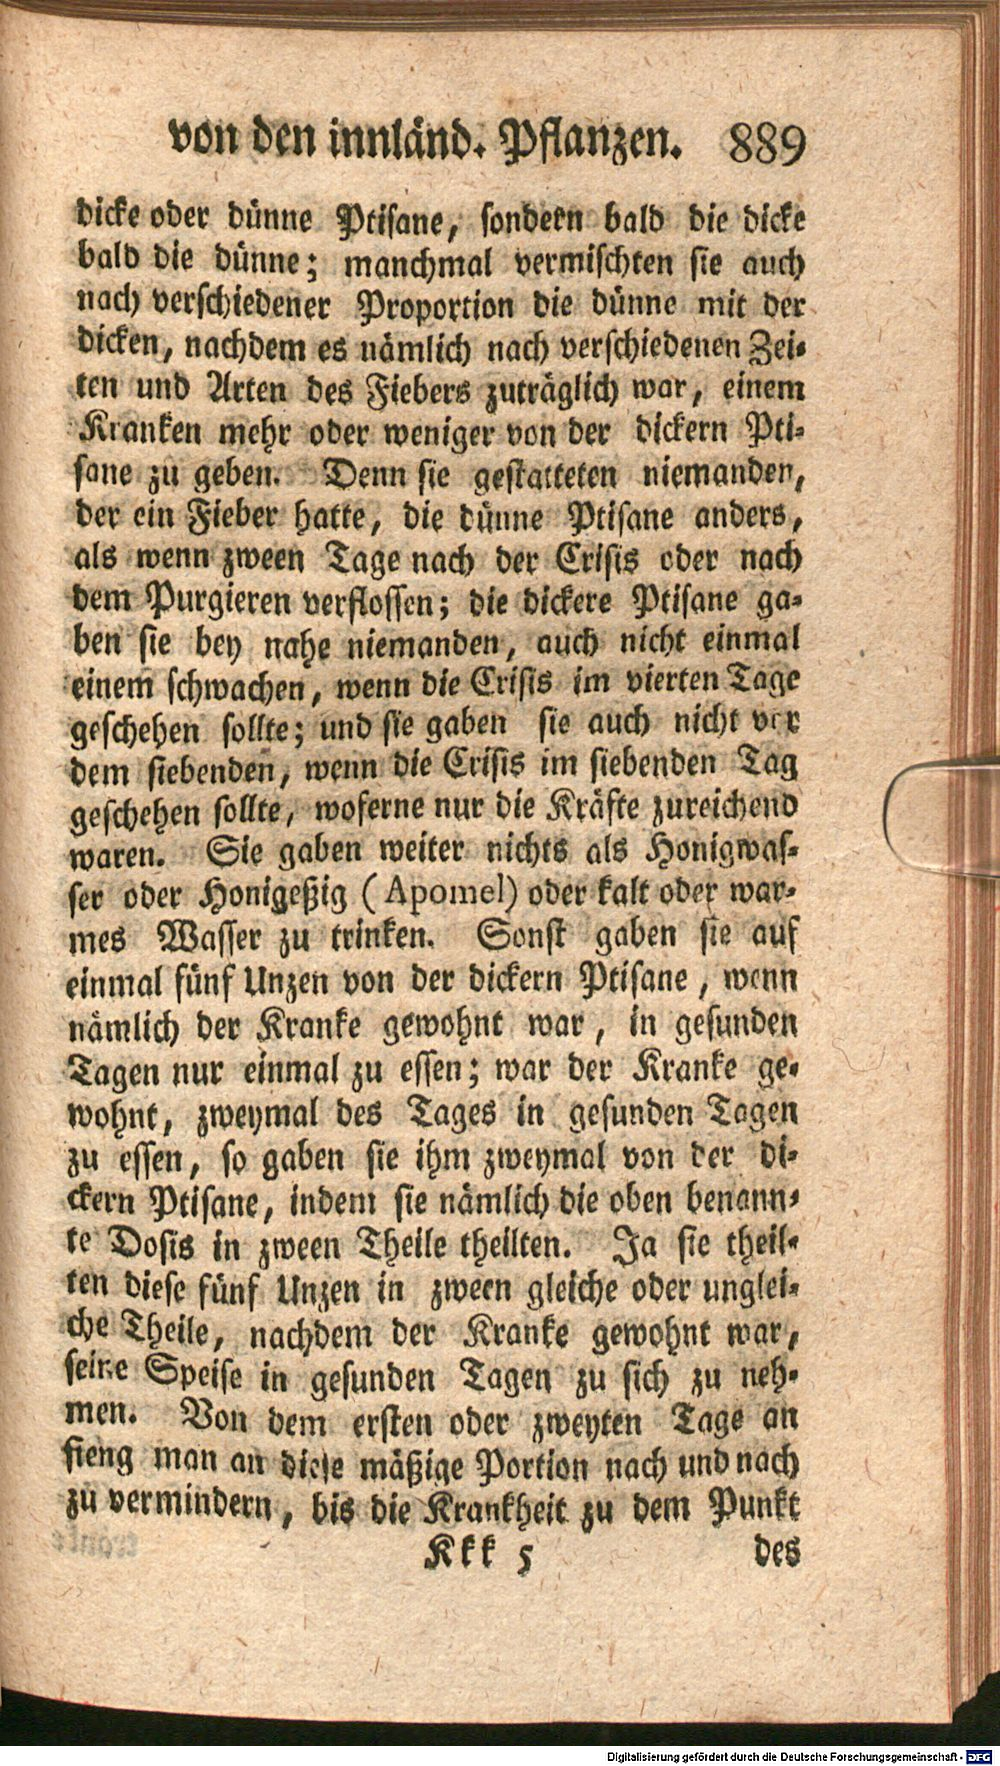 von den innländ. Pflanzen. 889
dicke oder dünne Ptisane, sondern bald die dicke
bald die dünne; manchmal vermischten sie auch
nach verschiedener Proportion die dünne mit der
dicken, nachdem es nämlich nach verschiedenen Zei-
ten und Arten des Fiebers zuträglich war, einem
Kranken mehr oder weniger von der dickern Pti-
sane zu geben. Denn sie gestatteten niemanden,
der ein Fieber hatte, die dünne Ptisane anders,
als wenn zween Tage nach der Crisis oder nach
dem Purgieren verflossen; die dickere Ptisane ga-
ben sie bey nahe niemanden, auch nicht einmal
einem schwachen, wenn die Crisis im vierten Tage
geschehen sollte; und sie gaben sie auch nicht vor
dem siebenden, wenn die Crisis im siebenden Tag
geschehen sollte, woferne nur die Kräfte zureichend
waren. Sie gaben weiter nichts als Honigwas-
ser oder Honigeßig (Apomel) oder kalt oder war-
mes Wasser zu trinken. Sonst gaben sie auf
einmal fünf Unzen von der dickern Ptisane, wenn
nämlich der Kranke gewohnt war, in gesunden
Tagen nur einmal zu essen; war der Kranke ge-
wohnt, zweymal des Tages in gesunden Tagen
zu essen, so gaben sie ihm zweymal von der di-
ckern Ptisane, indem sie nämlich die oben benann-
te Dosis in zween Theile theilten. Ja sie theil-
ten diese fünf Unzen in zween gleiche oder unglei-
che Theile, nachdem der Kranke gewohnt war,
seine Speise in gesunden Tagen zu sich zu neh-
men. Von dem ersten oder zweyten Tage an
fieng man an diese mäßige Portion nach und nach
zu vermindern, bis die Krankheit zu dem Punkt
Kkk 5 des
Digitalisierung gefördert durch die Deutsche Forschungsgemeinschaft - DFG